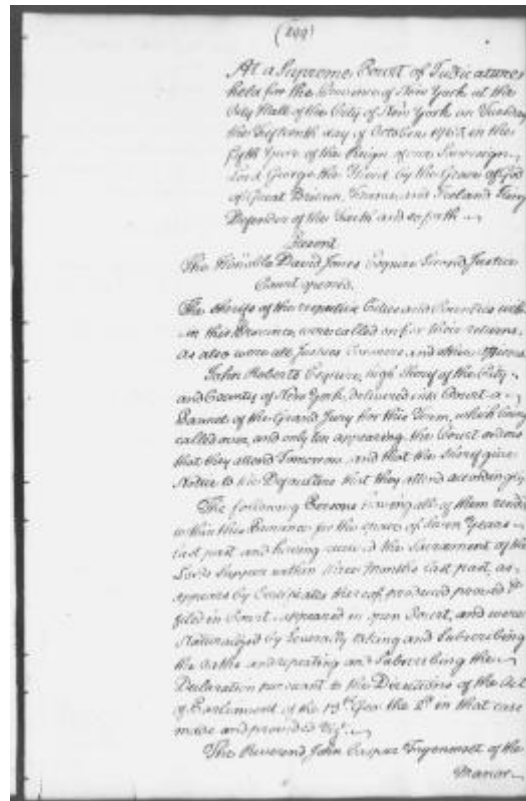 At a Supreme Court of Judicature
held for the Province of New York at the
City Hall of the City of New York on Tuesday
the fifteenth day of October 1765 in the
fifth Year of the Reign of our Sovereign
Lord George the Third by the Grace of God
of Great Britain, France, and Ireland King
Defender of the Faith and so forth
Present
The Honoble David Jones Esquire Second Justice
Court opened.
The Sherifs of the respective Cities and Counties with
in this Province, were called on for their returns,
As also were all Justices Coroners and other officers
John Roberts Esquire, high Sherif of the City
and County of New York, delivered into Court a
Pannel of the Grand Jury for this Term, which being
called over, and only ten appearing, the Court orders
that they attend Tomorrow and that the Sherif give
Notice to the Defaulters that they attend accordingly
The following Persons having all of them resided
within this Province for the space of Seven Years
last past and having received the Sacrament of the
Lords Supper within three Months last past, as
appears by Certificates thereof produced proved &
filed in Court appeared in open Court, and were
Naturalized by severally taking and Subscribing
the Oaths and repeating and Subscribing the
Declaration pursuant to the Directions of the Act
of Parliament of the 13th Geo. the 2d in that case
made and provided Vizt.
The Reverend John Casper of the
Manor